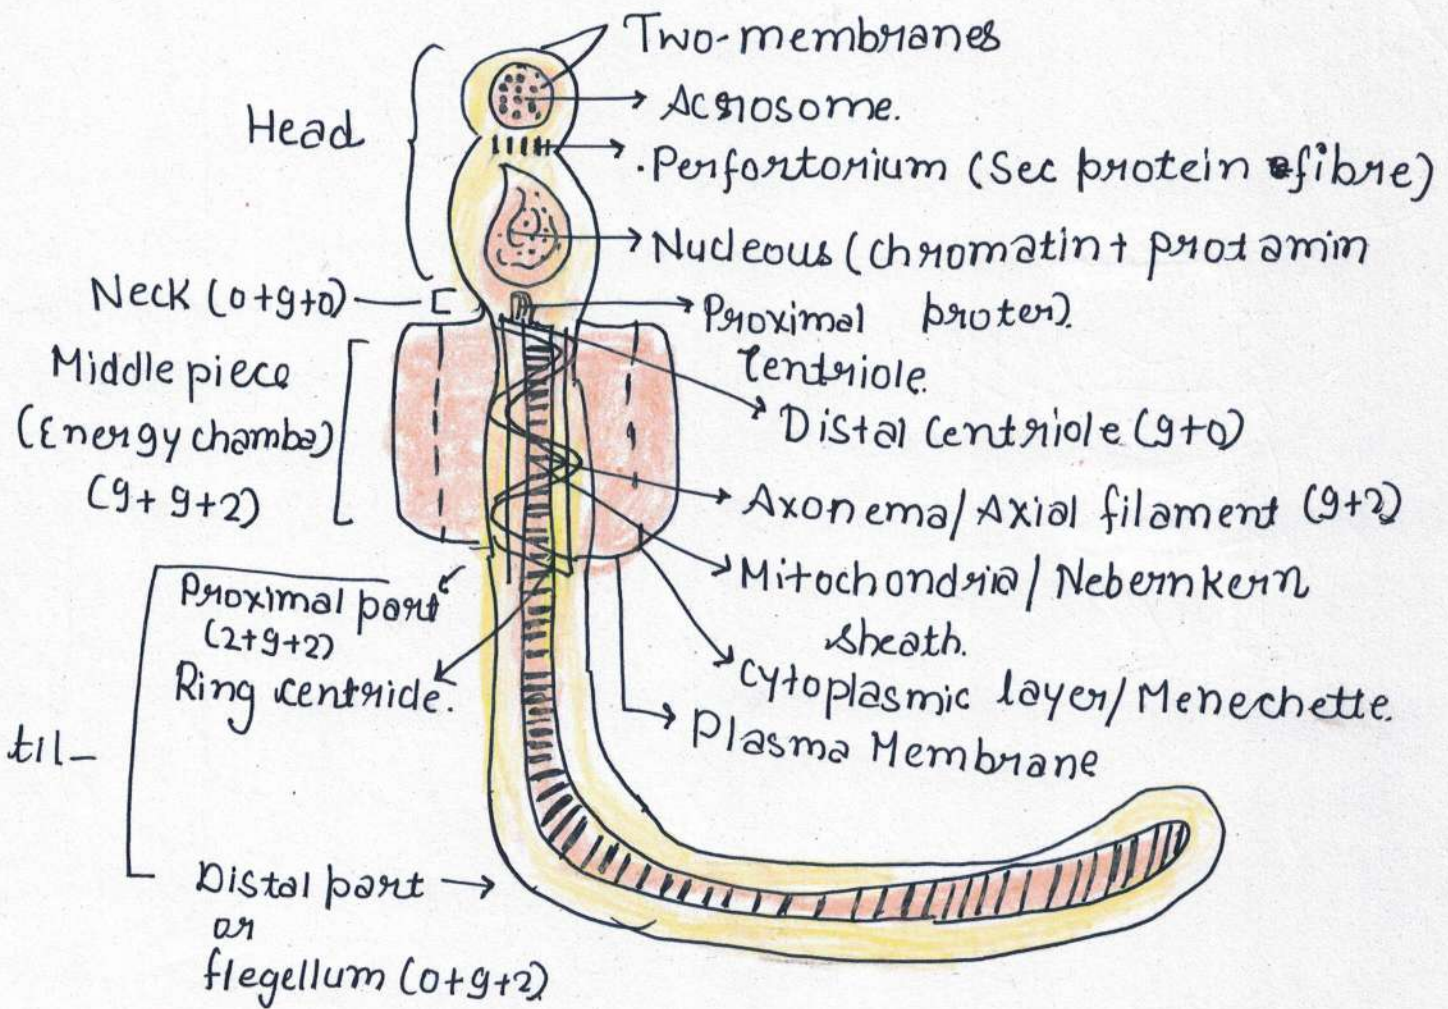 Two-membranes
Head
Acrosome.
Perfortorium (Sec protein fibre)
Nucleous (chromatin + protamin
Neck (0+9+0)
Proximal proter).
Centriole.
Middle piece
(Energy chamba)
(9+9+2)
Distal Centriole (9+0)
Axonema/Axial filament (9+2)
Mitochondria/Nebernkern
sheath.
Proximal part
(2+9+2)
Ring centride.
Cytoplasmic layer/Menechette.
Plasma Membrane
til-
Distal part
or
flegellum (0+9+2)